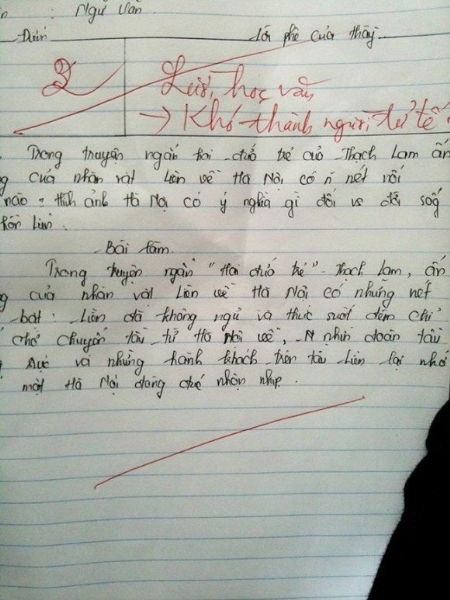 : Ngữ Văn
Điểm
Lời phê của thầy
2
Lười học văn
→ Khó thành người tử tế
Trong truyện ngắn hai đứa trẻ của Thạch Lam ấn
g của nhân vật Liên về Hà Nội có n nét nổi
nào - Hình ảnh Hà Nội có ý nghĩa gì đối vs đời sống
hồn Liên.
Bài làm
Trong truyện ngắn "Hai đứa trẻ" Thạch Lam, ấn
g của nhân vật Liên về Hà Nội có những nét
bật: Liên đã không ngủ và thức suốt đêm chỉ
chờ chuyến tàu từ Hà Nội về, nhìn đoàn tàu
rực và những hành khách trên tàu Liên lại nhớ
một Hà Nội đông đúc nhộn nhịp.